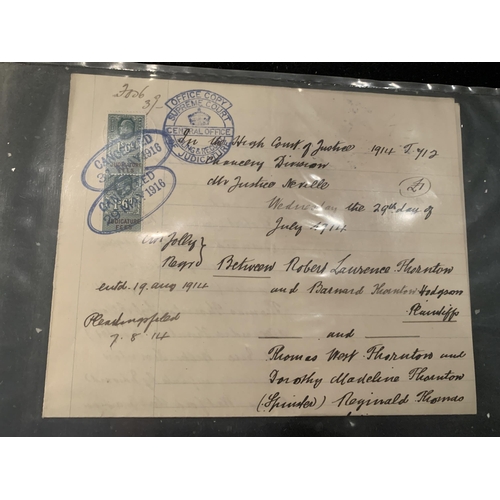 OFFICE COPY
SUPREME COURT
CENTRAL OFFICE
JUDICATURE
CANCELLED
1916
CANCELLED
1916
JUDICATURE
FEES
In the High Court of Justice 1914 T. 712
Chancery Division
Mr Justice Neville
Wednesday the 29th day of
July 1914
Mr Jolly
Regr
Between Robert Laurence Thornton
entd. 19 Aug 1914
and Barnard Thornton Hodgson
Plaintiffs
Pleadings filed
7. 8. 14
and
Thomas West Thornton and
Dorothy Madeline Thornton
(Spinster) Reginald Thomas